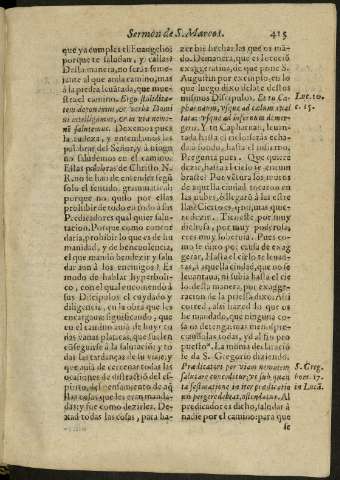 Sermón de S. Marcos. 415
que ya cumplei el Euangelio:
porque te saludan, y callas?
Desta manera, no serás seme-
jante al que anda camino, mas
á la piedra leuátada, que mue-
stra el camino. Ergo stultitia
tem deponamus, & verba Domi
ni intelligamus, & in via nemi-
nē salutemus. Dexemos pues
la rudeza, y entendamos las
palabras del Señor, y á ningu-
no saludemos en el camino.
Estas palabras de Christo N.
R. no se han de entender segū
solo el sentido grammatical;
porque no quiso por ellas
prohibir de todo en todo á sus
Predicadores qual quier salu-
tacion. Porque como concor
daria, prohibir lo que es de hu
manidad, y de beneuolencia,
el que manda bendezir y salu
dar aun á los enemigos? Es
modo de hablar hyperboli-
co, con el qual encomendó á
sus Discipulos el cuydado y
diligencia, en la obra que les
encargaua; significando, que
en el camino auiā de huyr to
das vanas platicas, que suelen
cōseguirse á la salutación y to
das las tardanças de su viaje, y
que auiā de cercenar todas las
ocasiones de distracciō del es-
piritu, del pensamiento de aq̄
llas cosas que les eran manda-
das: y fue como dezirles. De-
xad todas las cosas, para ha-
zer bié hechas las que os má-
do. Demanera, que es locució
exaggeratiua, de que pone S.
Augustin por exemplo, en lo
que luego dixo de las destos
mismos Discipulos. Et tu Ca-
pharnaum, vsque ad cælum exal
tata: vsque ad infernum demer-
geris. Y tu Capharnaū, leuan-
tada hasta el cielo serás echa-
da á fondo, hasta el infierno.
Pregunta pues. Que quiere
dezir, hasta el cielo se ensalçan
braste? Por vētura los muros
de aquella ciudad tocaron en
las nubes, ó llegaró á las estre
llas? Cierto es, que no; mas que
rē dezir. Tieneste por muy
dichosa, por muy poderosa,
eres muy soberuia. Pues co-
mo se dixo por causa de exag
gerar, Hasta el cielo te leuan-
tas, á aquella ciudad, que no se
leuantaua, ni subia hasta el cie
lo: desta manera, por exagge-
racion de la priessa dixo: Assi
corred, assi hazed lo que os
he mandado, que ninguna co-
sa os detenga: mas menospre-
ciandolas todas, yd al fin pro
puesto". La misma declaració
le da S. Gregorio diziendo.
Prædicatori per viam neminem
salutare conceditur, vt sub quan
ta festinatione in iter prædicatio
nis pergere debeat, ostendatur. Al
predicador es dicho, saludar á
nadie por el camino: para que
se
Luc. 10.
c. 15.
S. Greg.
hom. 17.
in Lucā.